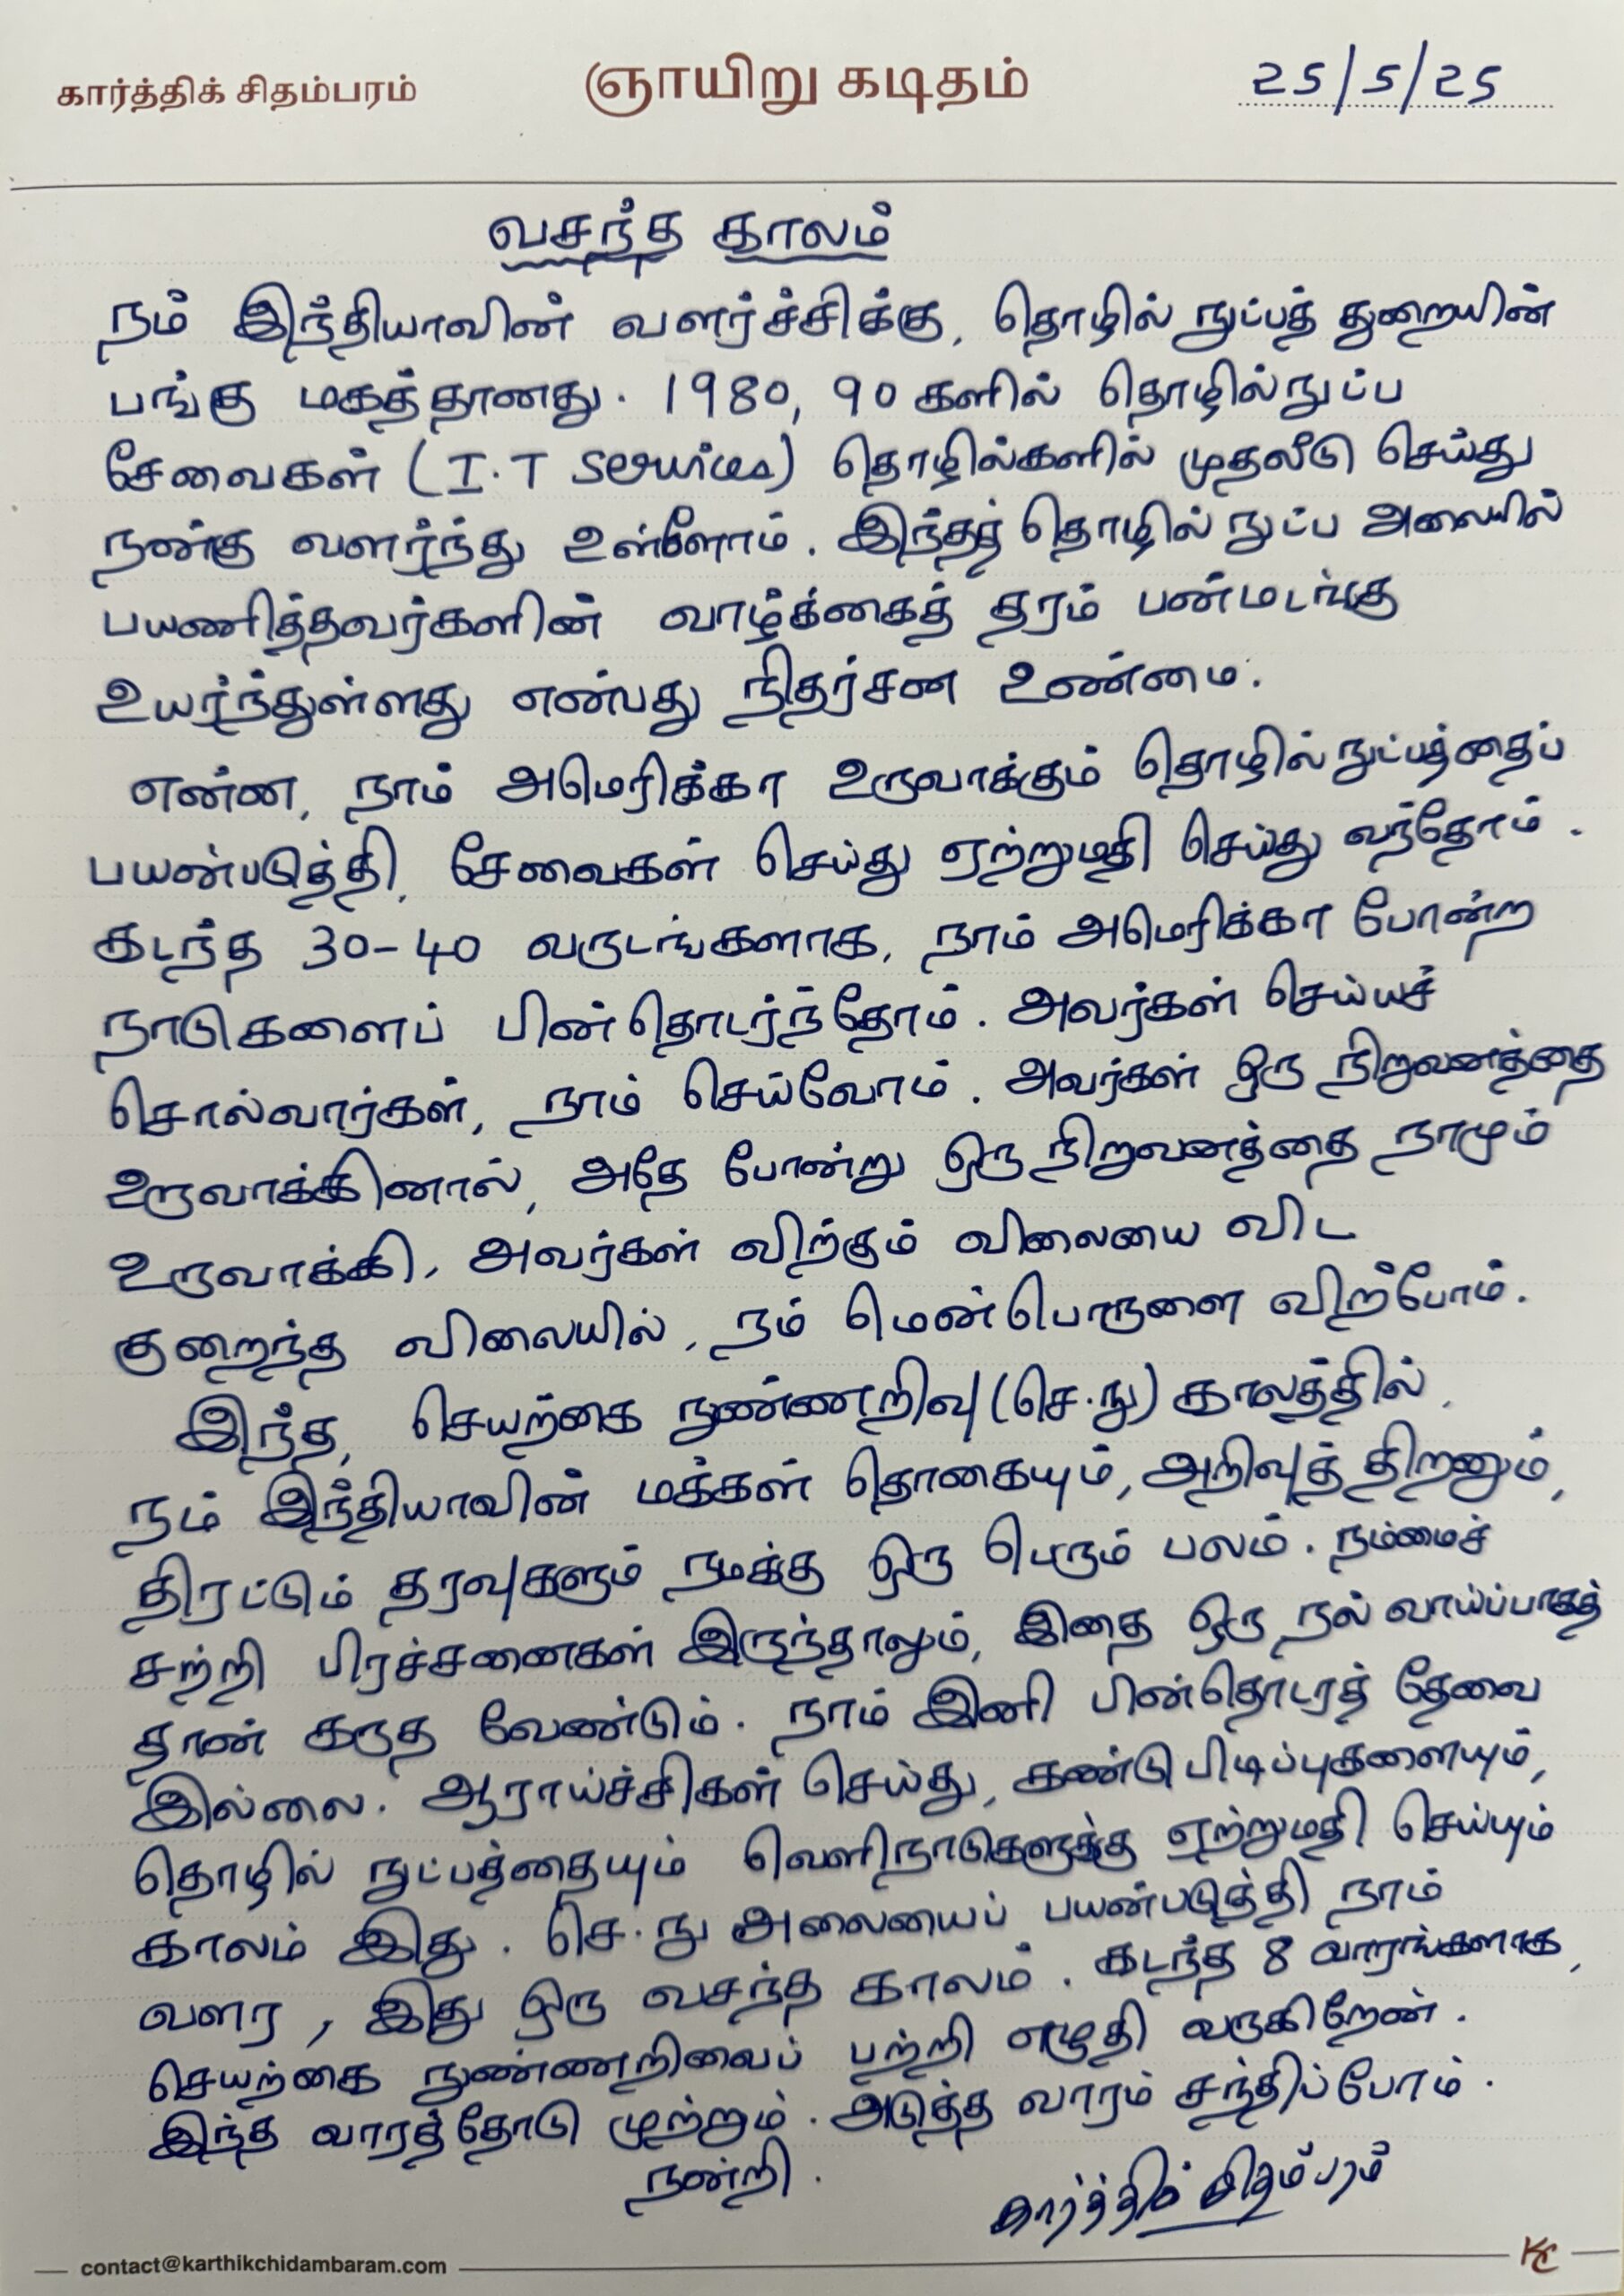 கார்த்திக் சிதம்பரம்
ஞாயிறு கடிதம்
25/5/25
வசந்த காலம்
நம் இந்தியாவின் வளர்ச்சிக்கு, தொழில் நுட்பத் துறையின்
பங்கு மகத்தானது. 1980, 90 களில் தொழில்நுட்ப
சேவைகள் (I.T Services) தொழில்களில் முதலீடு செய்து
நன்கு வளர்ந்து உள்ளோம். இந்தத் தொழில் நுட்ப அலையில்
பயணித்தவர்களின் வாழ்க்கைத் தரம் பன்மடங்கு
உயர்ந்துள்ளது என்பது நிதர்சன உண்மை.
என்ன, நாம் அமெரிக்கா உருவாக்கும் தொழில் நுட்பத்தைப்
பயன்படுத்தி, சேவைகள் செய்து ஏற்றுமதி செய்து வந்தோம்.
கடந்த 30-40 வருடங்களாக, நாம் அமெரிக்கா போன்ற
நாடுகளைப் பின்தொடர்ந்தோம். அவர்கள் செய்யச்
சொல்வார்கள், நாம் செய்வோம். அவர்கள் ஒரு நிறுவனத்தை
உருவாக்கினால், அதே போன்று ஒரு நிறுவனத்தை நாமும்
உருவாக்கி, அவர்கள் விற்கும் விலையை விட
குறைந்த விலையில், நம் மென்பொருளை விற்போம்.
இந்த, செயற்கை நுண்ணறிவு (செ.நு) காலத்தில்,
நம் இந்தியாவின் மக்கள் தொகையும், அறிவுத் திறனும்,
திரட்டும் தரவுகளும் நமக்கு ஒரு பெரும் பலம். நம்மைச்
சுற்றி பிரச்சனைகள் இருந்தாலும், இதை ஒரு நல் வாய்ப்பாகத்
தான் கருத வேண்டும். நாம் இனி பின்தொடரத் தேவை
இல்லை. ஆராய்ச்சிகள் செய்து, கண்டு பிடிப்புகளையும்,
தொழில் நுட்பத்தையும் வெளிநாடுகளுக்கு ஏற்றுமதி செய்யும்
காலம் இது. செ.நு அலையைப் பயன்படுத்தி நாம்
வளர, இது ஒரு வசந்த காலம். கடந்த 8 வாரங்களாக,
செயற்கை நுண்ணறிவைப் பற்றி எழுதி வருகிறேன்.
இந்த வாரத்தோடு முற்றும். அடுத்த வாரம் சந்திப்போம்.
நன்றி.
கார்த்திக் சிதம்பரம்
contact@karthikchidambaram.com
KC